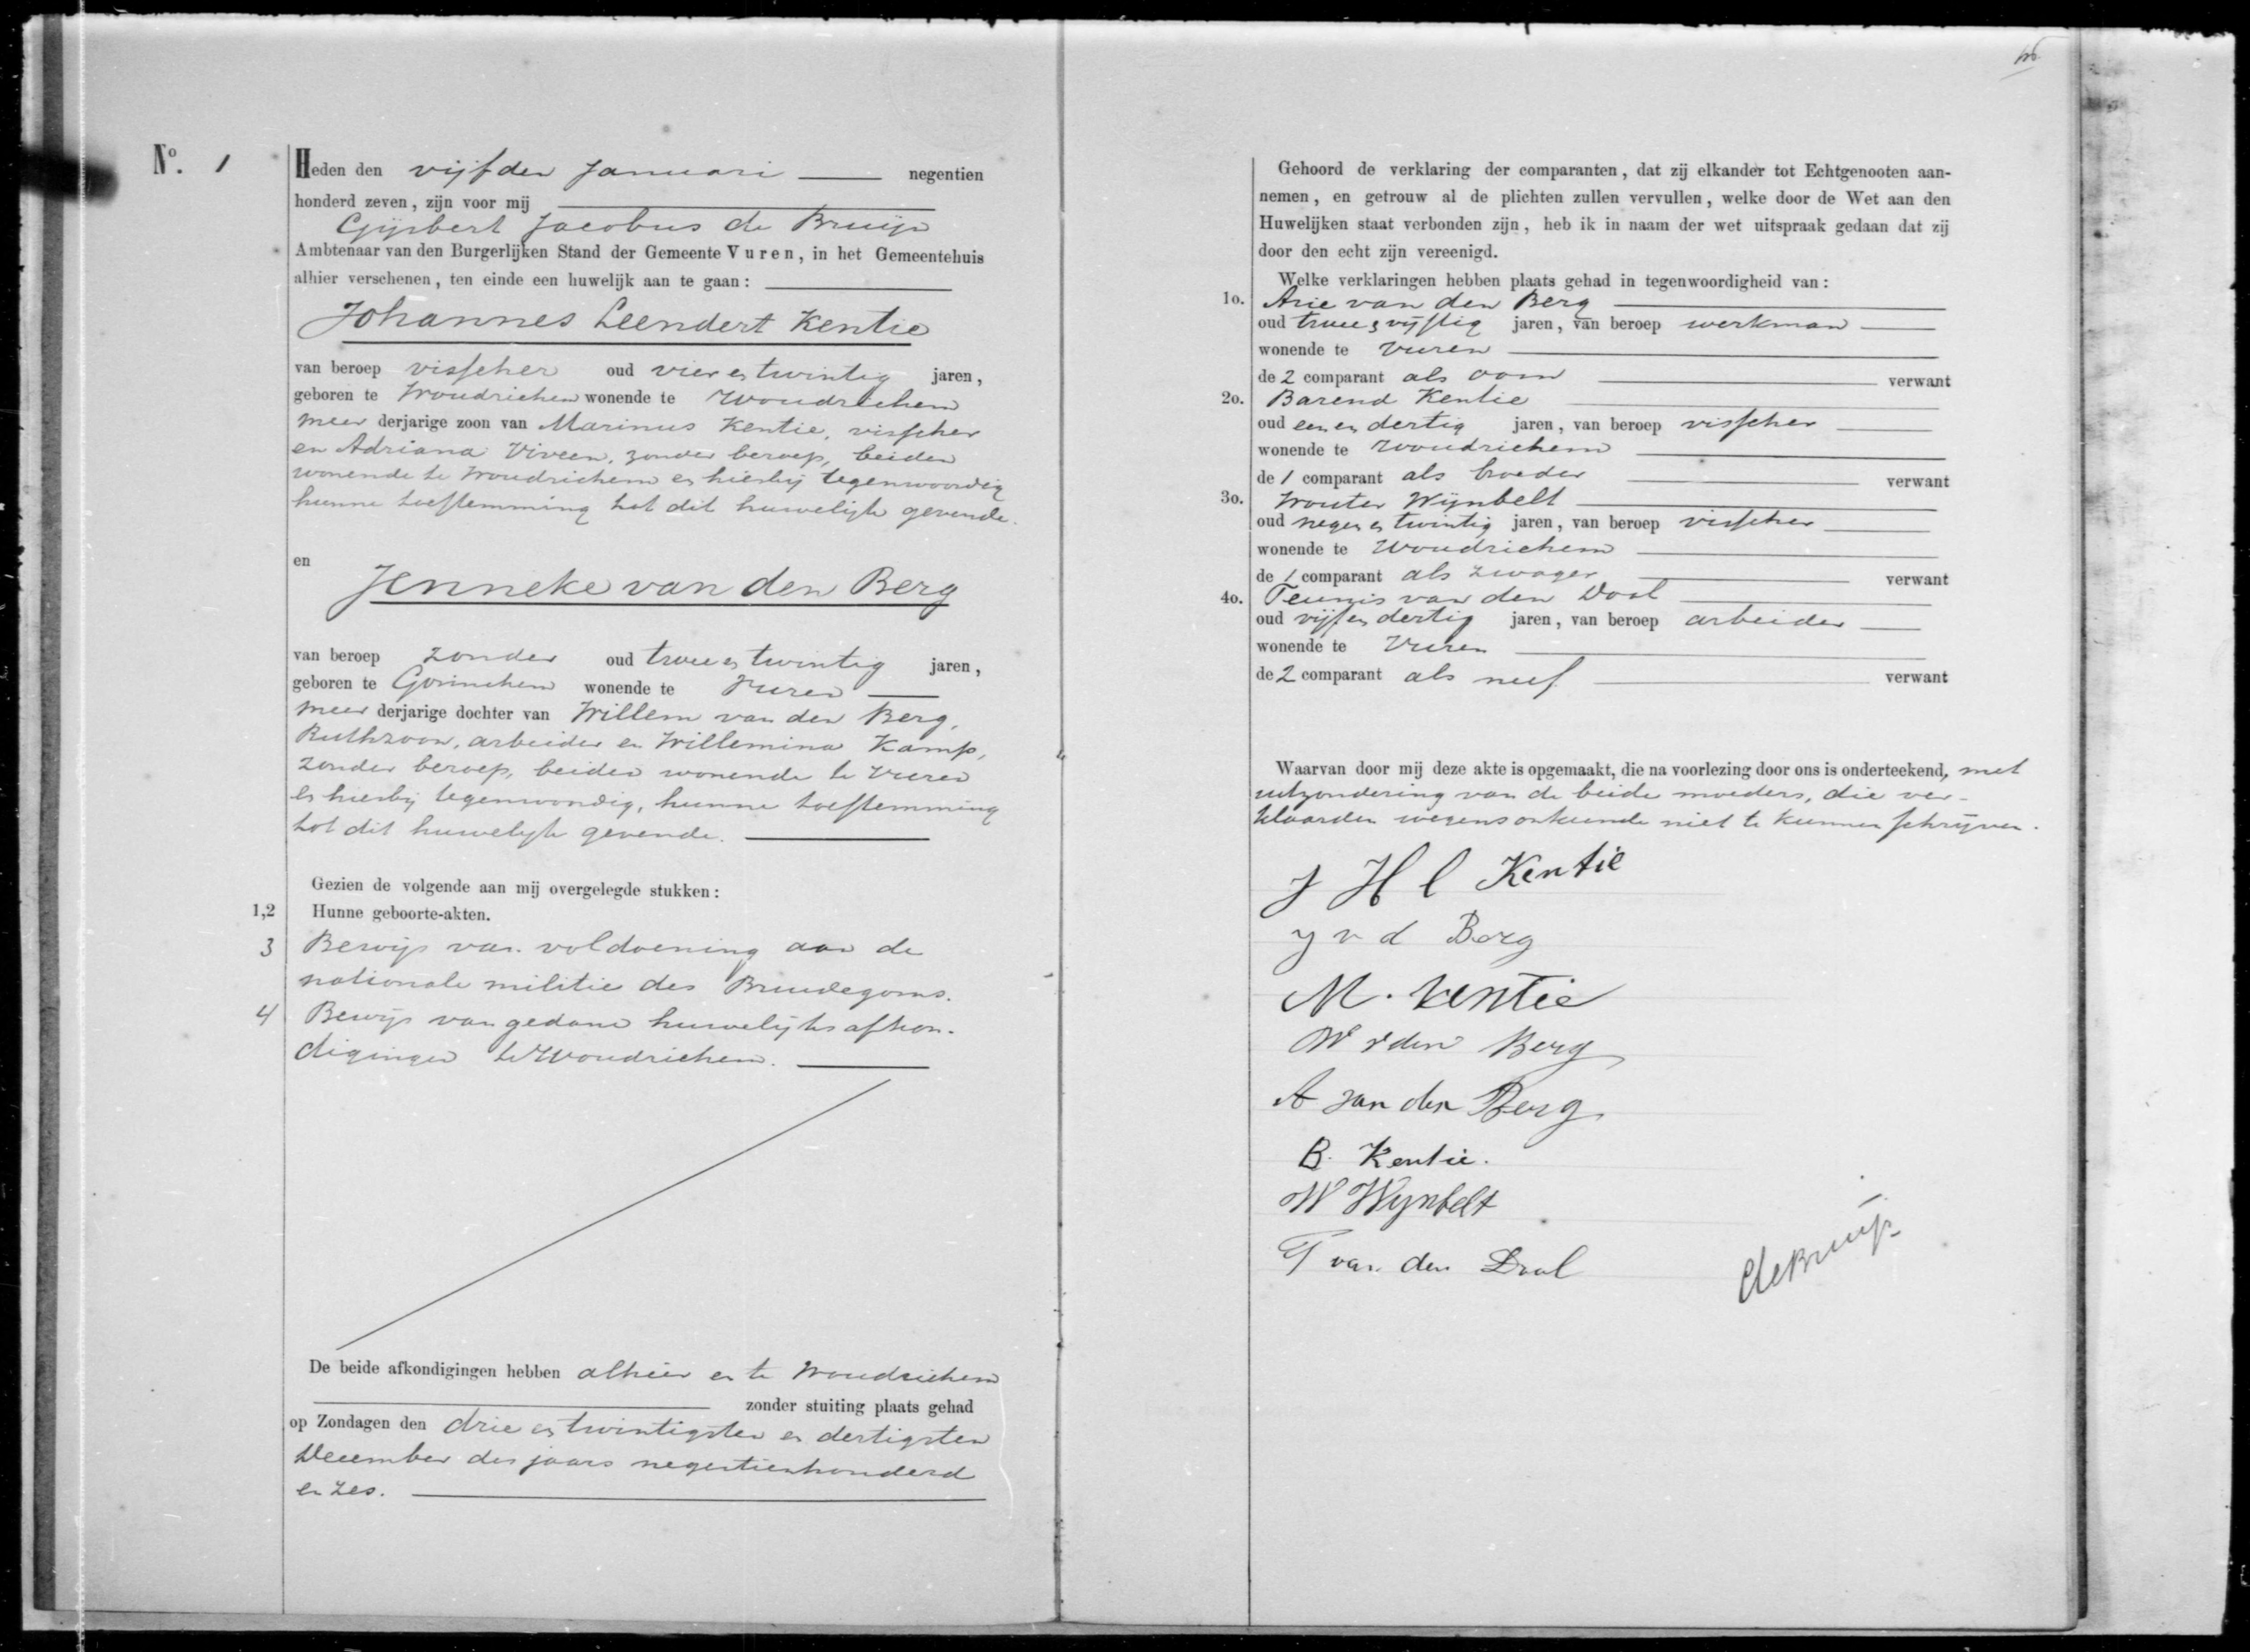 No. 1
Heden den vijfden Januari negentien
honderd zeven, zijn voor mij
Gijsbert Jacobus de Bruijn
Ambtenaar van den Burgerlijken Stand der Gemeente Vuren, in het Gemeentehuis
alhier verschenen, ten einde een huwelijk aan te gaan:
Johannes Leendert Kentie
van beroep visscher oud vier en twintig jaren,
geboren te Woudrichem wonende te Woudrichem
meer derjarige zoon van Marinus Kentie, visscher
en Adriana Viveen, zonder beroep, beiden
wonende te Woudrichem en hierbij tegenwoordig
hunne toestemming tot dit huwelijk gevende.
en
Jenneke van den Berg
van beroep zonder oud twee en twintig jaren,
geboren te Gorinchem wonende te Vuren
meer derjarige dochter van Willem van den Berg,
Ruthzoon, arbeider en Willemina Kamp,
zonder beroep, beiden wonende te Vuren
en hierbij tegenwoordig, hunne toestemming
tot dit huwelijk gevende.
Gezien de volgende aan mij overgelegde stukken:
1,2 Hunne geboorte-akten.
3 Bewijs van voldoening aan de
nationale militie des Bruidegoms.
4 Bewijs van gedane huwelijks afkon-
digingen te Woudrichem.
De beide afkondigingen hebben alhier en te Woudrichem
zonder stuiting plaats gehad
op Zondagen den drie en twintigsten en dertigsten
December des jaars negentienhonderd
en zes.
Gehoord de verklaring der comparanten, dat zij elkander tot Echtgenooten aan-
nemen, en getrouw al de plichten zullen vervullen, welke door de Wet aan den
Huwelijken staat verbonden zijn, heb ik in naam der wet uitspraak gedaan dat zij
door den echt zijn vereenigd.
Welke verklaringen hebben plaats gehad in tegenwoordigheid van:
1o. Arie van den Berg
oud twee en vijftig jaren, van beroep werkman
wonende te Vuren
de 2 comparant als oom verwant
2o. Barend Kentie
oud een en dertig jaren, van beroep visscher
wonende te Woudrichem
de 1 comparant als broeder verwant
3o. Wouter Wijnbelt
oud negen en twintig jaren, van beroep visscher
wonende te Woudrichem
de 1 comparant als zwager verwant
4o. Teunis van den Dool
oud vijf en dertig jaren, van beroep arbeider
wonende te Vuren
de 2 comparant als neef verwant
Waarvan door mij deze akte is opgemaakt, die na voorlezing door ons is onderteekend, met
uitzondering van de beide moeders, die ver-
klaarden wegens onkunde niet te kunnen schrijven.
J H l Kentie
J v d Berg
M. Kentie
W v den Berg
A van den Berg
B. Kentie.
W Wynbelt
T van den Dool
deBruijn